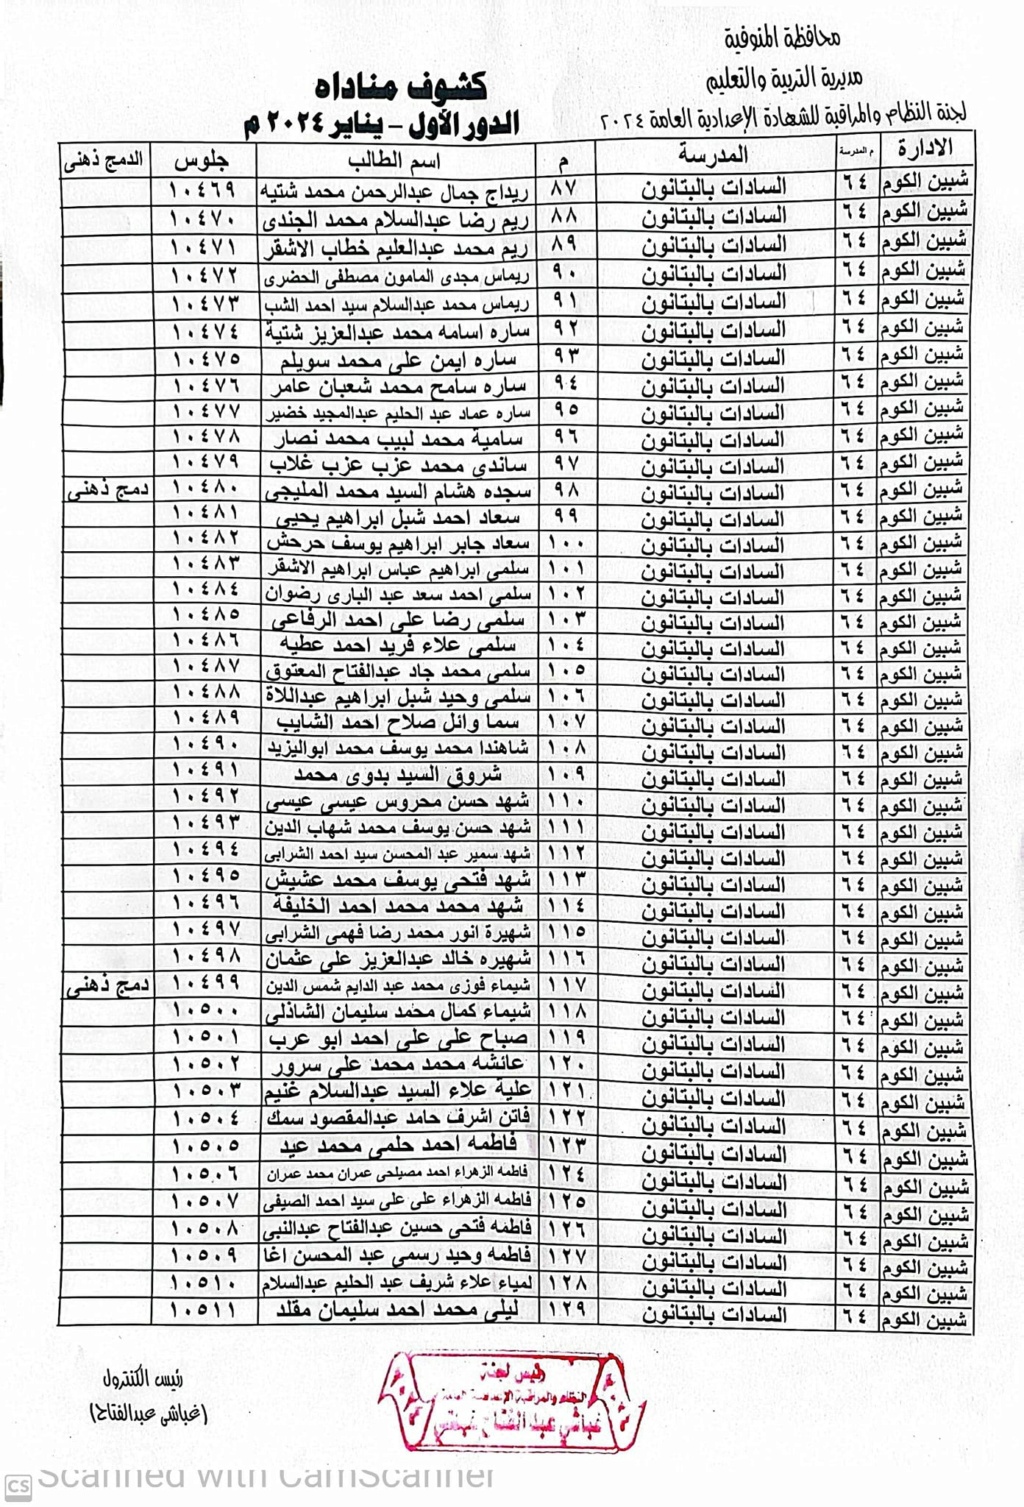 محافظة المنوفية
مديرية التربية والتعليم
لجنة النظام والمراقبة للشهادة الإعدادية العامة ٢٠٢٤
كشوف مناداه
الدور الأول - يناير ٢٠٢٤ م
الادارة م المدرسة المدرسة م اسم الطالب جلوس الدمج ذهنى
شبين الكوم ٦٤ السادات بالبتانون ٨٧ ريداج جمال عبدالرحمن محمد شتيه ١٠٤٦٩
شبين الكوم ٦٤ السادات بالبتانون ٨٨ ريم رضا عبدالسلام محمد الجندى ١٠٤٧٠
شبين الكوم ٦٤ السادات بالبتانون ٨٩ ريم محمد عبدالعليم خطاب الاشقر ١٠٤٧١
شبين الكوم ٦٤ السادات بالبتانون ٩٠ ريماس مجدى المامون مصطفى الحضرى ١٠٤٧٢
شبين الكوم ٦٤ السادات بالبتانون ٩١ ريماس محمد عبدالسلام سيد احمد الشب ١٠٤٧٣
شبين الكوم ٦٤ السادات بالبتانون ٩٢ ساره اسامه محمد عبدالعزيز شتية ١٠٤٧٤
شبين الكوم ٦٤ السادات بالبتانون ٩٣ ساره ايمن على محمد سويلم ١٠٤٧٥
شبين الكوم ٦٤ السادات بالبتانون ٩٤ ساره سامح محمد شعبان عامر ١٠٤٧٦
شبين الكوم ٦٤ السادات بالبتانون ٩٥ ساره عماد عبد الحليم عبدالمجيد خضير ١٠٤٧٧
شبين الكوم ٦٤ السادات بالبتانون ٩٦ سامية محمد لبيب محمد نصار ١٠٤٧٨
شبين الكوم ٦٤ السادات بالبتانون ٩٧ ساندي محمد عزب عزب غلاب ١٠٤٧٩
شبين الكوم ٦٤ السادات بالبتانون ٩٨ سجده هشام السيد محمد المليجى ١٠٤٨٠ دمج ذهنى
شبين الكوم ٦٤ السادات بالبتانون ٩٩ سعاد احمد شبل ابراهيم يحيى ١٠٤٨١
شبين الكوم ٦٤ السادات بالبتانون ١٠٠ سعاد جابر ابراهيم يوسف حرحش ١٠٤٨٢
شبين الكوم ٦٤ السادات بالبتانون ١٠١ سلمى ابراهيم عباس ابراهيم الاشقر ١٠٤٨٣
شبين الكوم ٦٤ السادات بالبتانون ١٠٢ سلمى احمد سعد عبد البارى رضوان ١٠٤٨٤
شبين الكوم ٦٤ السادات بالبتانون ١٠٣ سلمى رضا على احمد الرفاعى ١٠٤٨٥
شبين الكوم ٦٤ السادات بالبتانون ١٠٤ سلمى علاء فريد احمد عطيه ١٠٤٨٦
شبين الكوم ٦٤ السادات بالبتانون ١٠٥ سلمى محمد جاد عبدالفتاح المعتوق ١٠٤٨٧
شبين الكوم ٦٤ السادات بالبتانون ١٠٦ سلمى وحيد شبل ابراهيم عبداللاة ١٠٤٨٨
شبين الكوم ٦٤ السادات بالبتانون ١٠٧ سما وائل صلاح احمد الشايب ١٠٤٨٩
شبين الكوم ٦٤ السادات بالبتانون ١٠٨ شاهندا محمد يوسف محمد ابواليزيد ١٠٤٩٠
شبين الكوم ٦٤ السادات بالبتانون ١٠٩ شروق السيد بدوى محمد ١٠٤٩١
شبين الكوم ٦٤ السادات بالبتانون ١١٠ شهد حسن محروس عيسى عيسى ١٠٤٩٢
شبين الكوم ٦٤ السادات بالبتانون ١١١ شهد حسن يوسف محمد شهاب الدين ١٠٤٩٣
شبين الكوم ٦٤ السادات بالبتانون ١١٢ شهد سمير عبد المحسن سيد احمد الشرابى ١٠٤٩٤
شبين الكوم ٦٤ السادات بالبتانون ١١٣ شهد فتحى يوسف محمد عشيش ١٠٤٩٥
شبين الكوم ٦٤ السادات بالبتانون ١١٤ شهد محمد محمد احمد الخليفة ١٠٤٩٦
شبين الكوم ٦٤ السادات بالبتانون ١١٥ شهيرة انور محمد رضا فهمى الشرابى ١٠٤٩٧
شبين الكوم ٦٤ السادات بالبتانون ١١٦ شهيره خالد عبدالعزيز على عثمان ١٠٤٩٨
شبين الكوم ٦٤ السادات بالبتانون ١١٧ شيماء فوزى محمد عبد الدايم شمس الدين ١٠٤٩٩ دمج ذهنى
شبين الكوم ٦٤ السادات بالبتانون ١١٨ شيماء كمال محمد سليمان الشاذلى ١٠٥٠٠
شبين الكوم ٦٤ السادات بالبتانون ١١٩ صباح على على احمد ابو عرب ١٠٥٠١
شبين الكوم ٦٤ السادات بالبتانون ١٢٠ عائشه محمد محمد على سرور ١٠٥٠٢
شبين الكوم ٦٤ السادات بالبتانون ١٢١ علية علاء السيد عبدالسلام غنيم ١٠٥٠٣
شبين الكوم ٦٤ السادات بالبتانون ١٢٢ فاتن اشرف حامد عبدالمقصود سمك ١٠٥٠٤
شبين الكوم ٦٤ السادات بالبتانون ١٢٣ فاطمه احمد حلمى محمد عيد ١٠٥٠٥
شبين الكوم ٦٤ السادات بالبتانون ١٢٤ فاطمه الزهراء احمد مصيلحى عمران محمد عمران ١٠٥٠٦
شبين الكوم ٦٤ السادات بالبتانون ١٢٥ فاطمه الزهراء على على سيد احمد الصيفى ١٠٥٠٧
شبين الكوم ٦٤ السادات بالبتانون ١٢٦ فاطمه فتحى حسين عبدالفتاح عبدالنبى ١٠٥٠٨
شبين الكوم ٦٤ السادات بالبتانون ١٢٧ فاطمه وحيد رسمى عبد المحسن اغا ١٠٥٠٩
شبين الكوم ٦٤ السادات بالبتانون ١٢٨ لمياء علاء شريف عبد الحليم عبدالسلام ١٠٥١٠
شبين الكوم ٦٤ السادات بالبتانون ١٢٩ ليلى محمد احمد سليمان مقلد ١٠٥١١
رئيس الكنترول
(غباشى عبدالفتاح)
رئيس لجنة
النظام والمراقبة
غباشي عبد الفتاح
CS Scanned with CamScanner